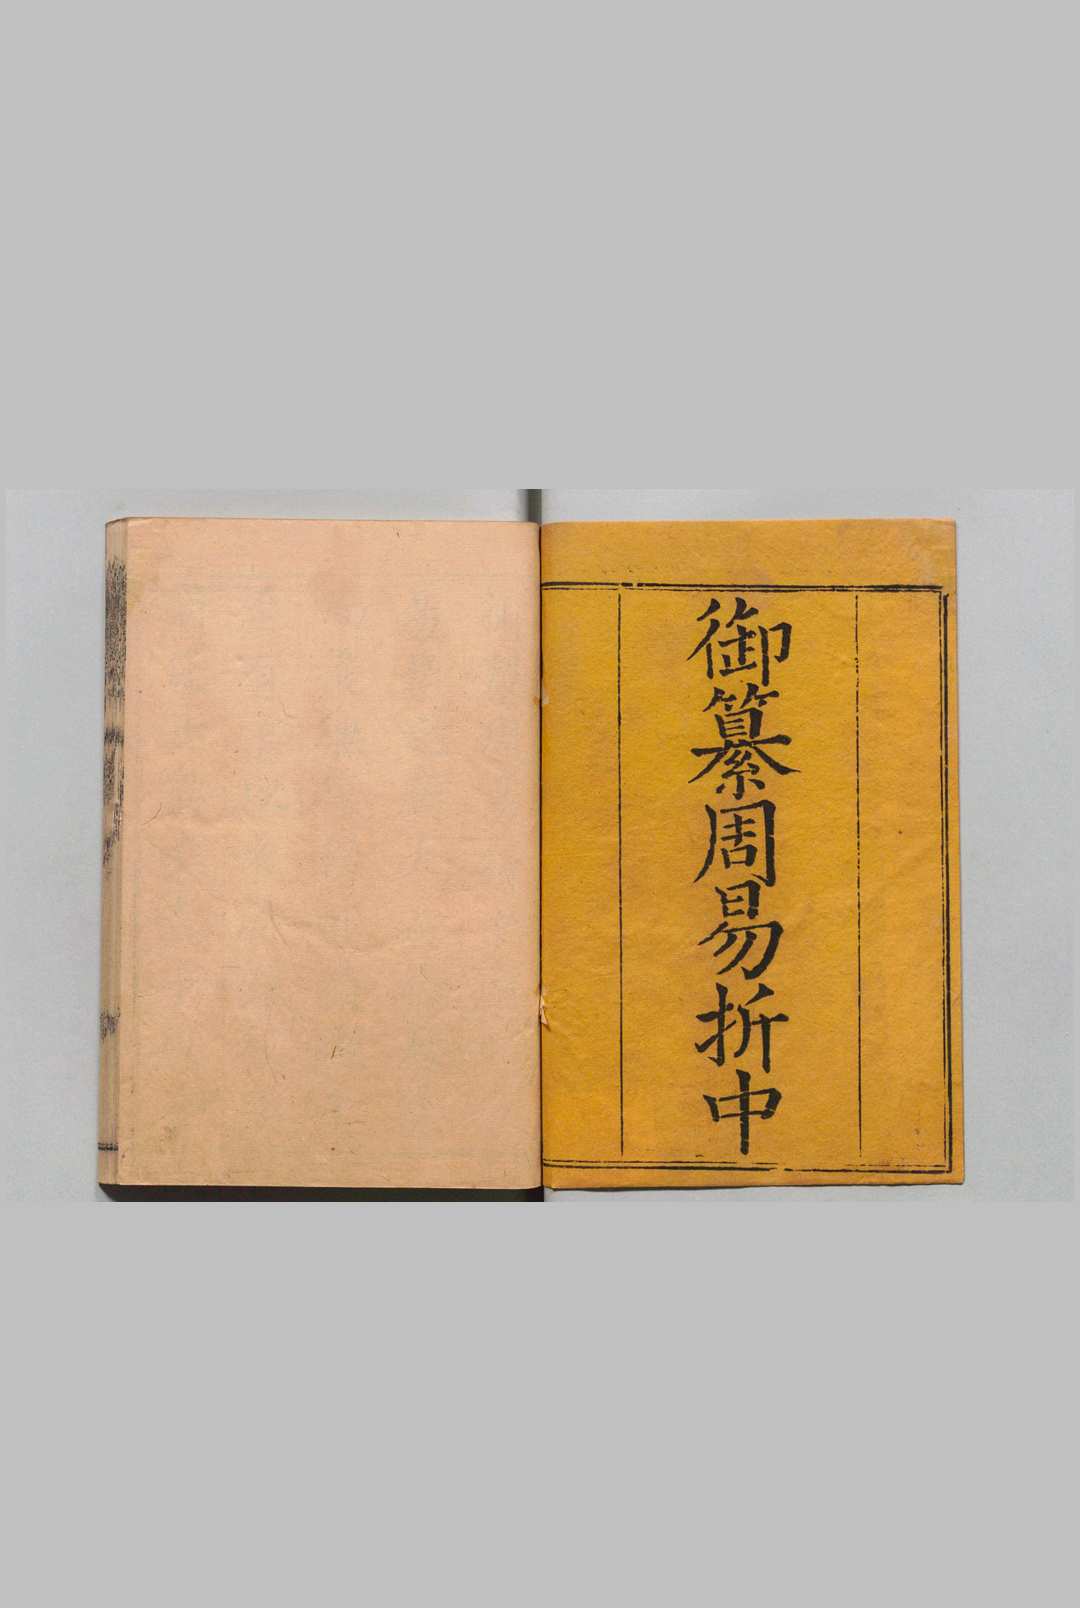 御纂周易折中